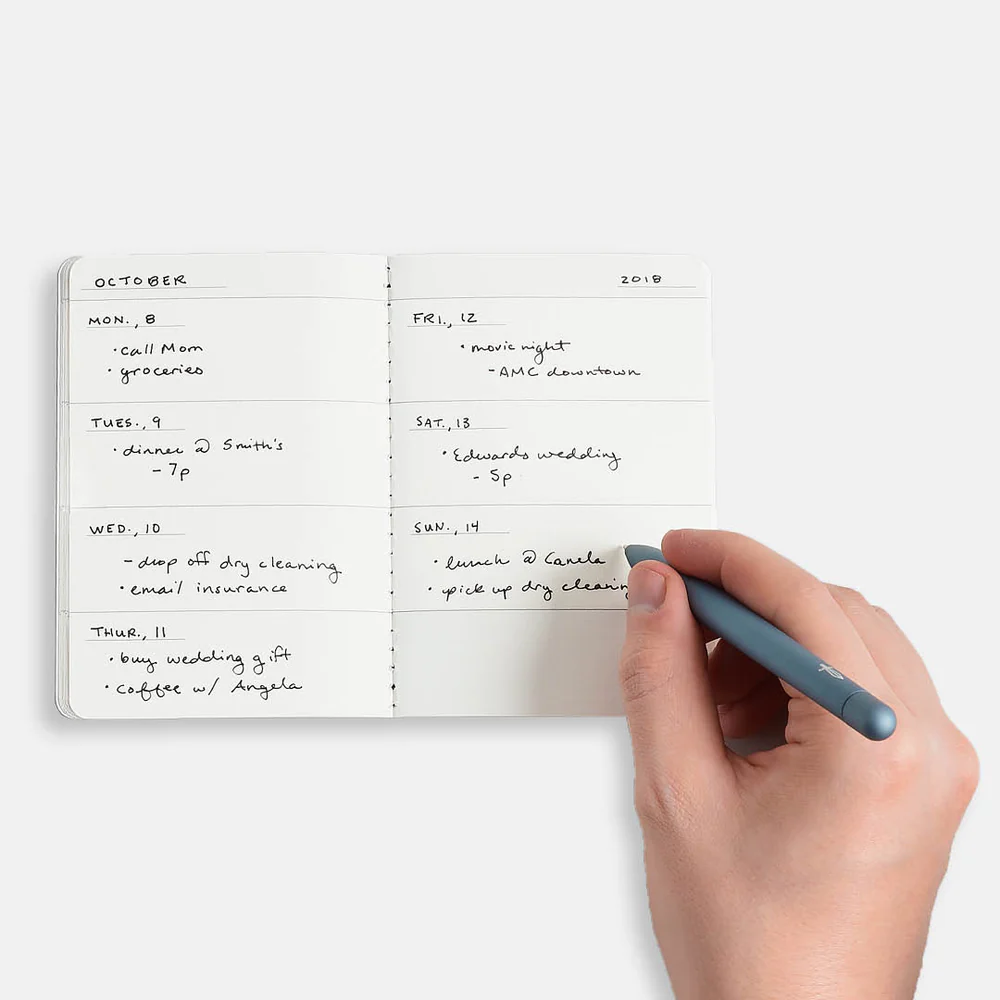 OCTOBER
MON., 8
· call Mom
· groceries
TUES., 9
· dinner @ Smith's
- 7p
WED., 10
- drop off dry cleaning
· email insurance
THUR., 11
· buy wedding gift
· coffee w/ Angela
2018
FRI., 12
· movie night
- AMC downtown
SAT., 13
· Edwards wedding
- 5p
SUN., 14
· lunch @ Canela
· pick up dry cleaning